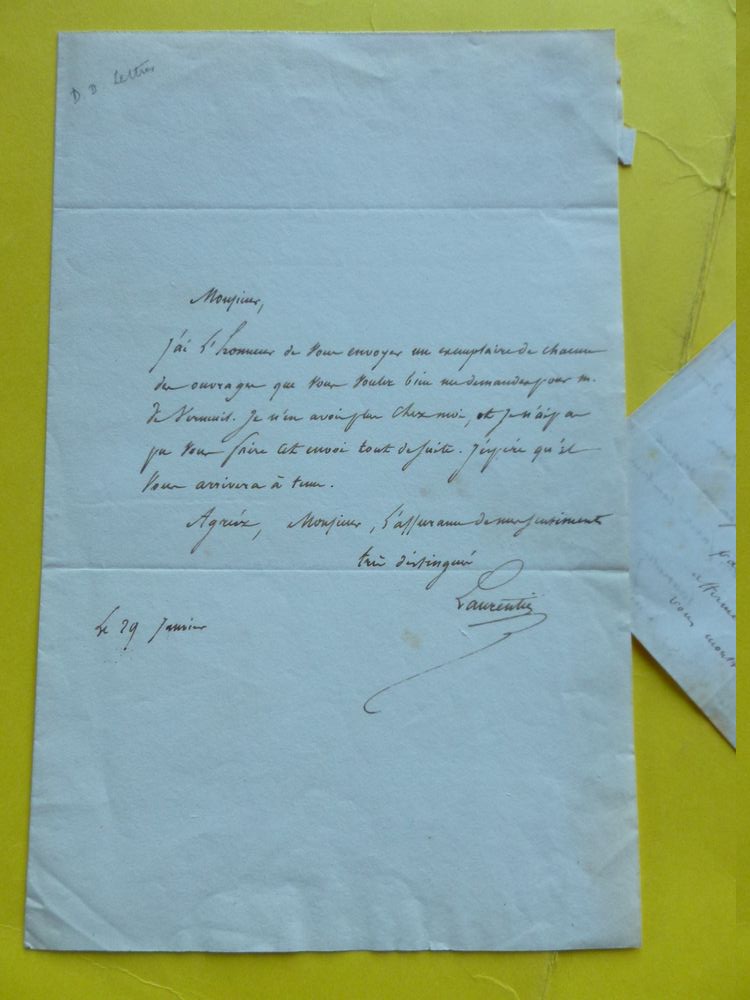 D. D. Lettres
Monsieur,
j'ai l'honneur de vous envoyer un exemplaire de chacun
des ouvrages que vous voulez bien me demander pour m.
de Verneuil. Je n'en avois plus chez moi, et je n'ai pas
pu vous faire cet envoi tout de suite. j'espère qu'il
vous arrivera à tems.
Agréez, Monsieur, l'assurance de mes sentiments
très distingués
Laurentie
Le 29 Janvier
vous